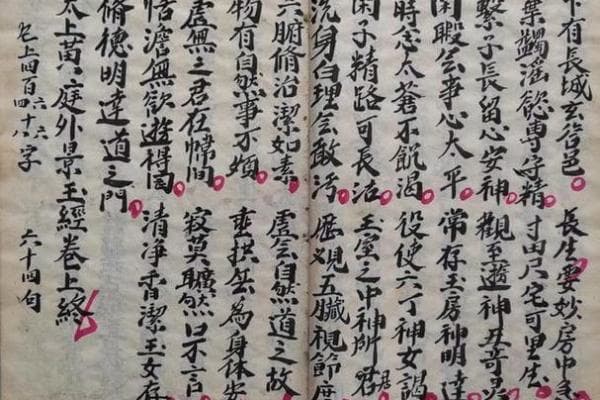 下有長城玄谷邑 長生要妙房中急
棄蠲滛慾專守精 寸田尺宅可里生
繫子長留心安神 觀至遊神丑奇灵
閑暇無事心太平 常存玉房神明達
時念太蒼不飢渴 役使六丁神女謁
閑子精路可長活 玉室之中神所君 居
洗身自理無敢汚 歷观五臟視飾度
六腑脩治潔如素 虛無自然道之故
物有自然事不煩 垂拱無為身体安
虛無之君在幃間 寂莫曠然口不言
恬澹無欲遊得園 清净香潔玉女存
脩德明達道之門
太上黃庭外景玉經卷上終
已上四百四十八字 六六 六十四句